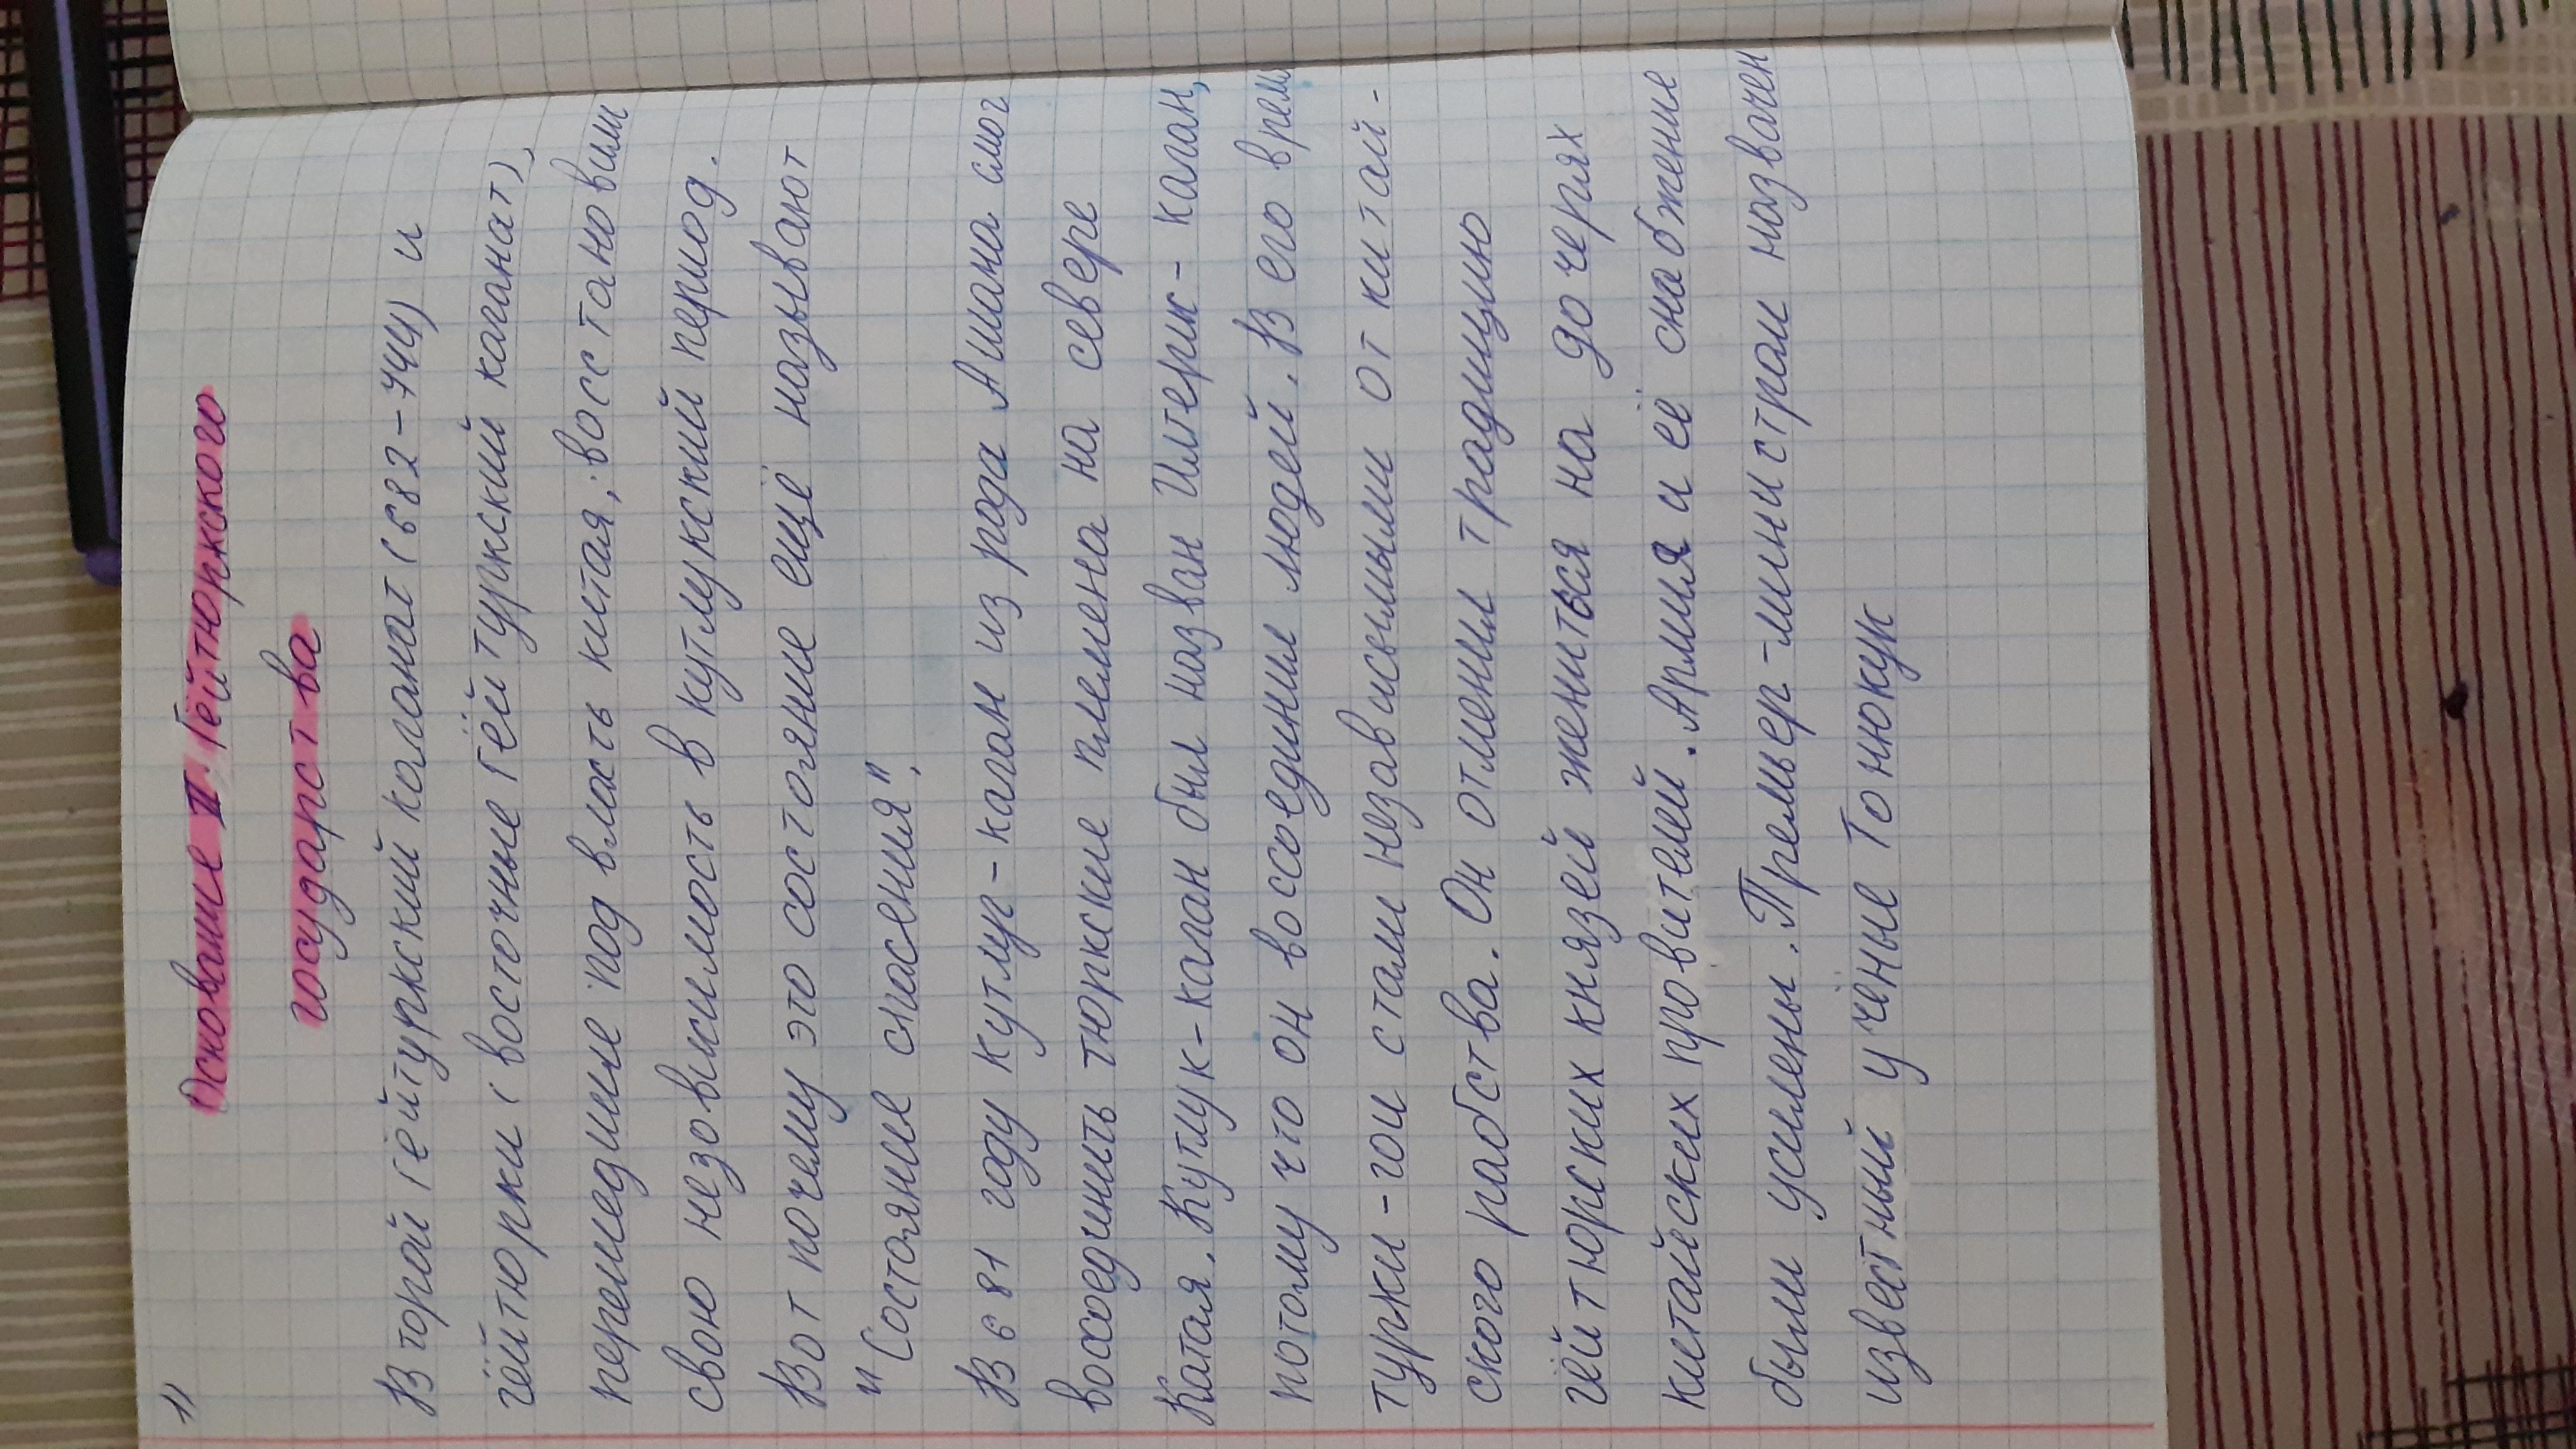 1)
Основание II. Гёйтюркского
государства
Второй гёйтуркский каганат (682-744) и
гёйтюрки (восточные Гёйтуркский каганат),
перешедшие под власть китая, восстановили
свою независимость в кутлукский период.
Вот почему это состояние ещё называют
"Состояние спасения".
В 681 году кутлуг-каган из рода Ашана смог
восоединить тюркские племена на севере
Катая. Кутлук-каган был назван Илтерик-каган,
потому что он воссоединил людей. В его врем
турки-гои стали независимыми от китай-
ского рабства. Он отменил традицию
гёйтюрских князей жениться на дочерях
китайских провителей. Армия и её снабжение
были усилены. Премьер-министром назвачен
известный учёные Тонюкук